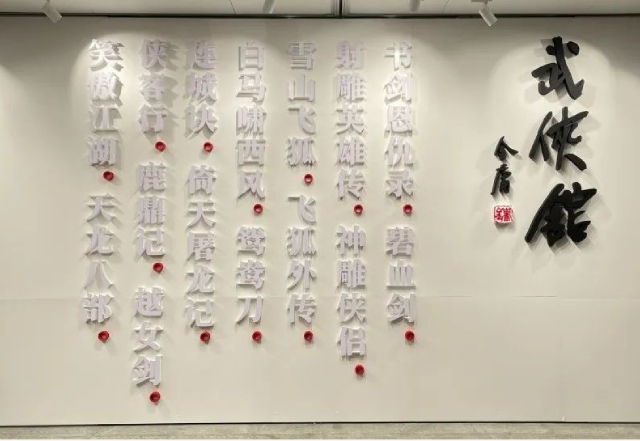 武俠館
金庸
书剑恩仇录。碧血剑。
射雕英雄传。神雕侠侣。
雪山飞狐。飞狐外传。
白马啸西风。鸳鸯刀。
连城诀。倚天屠龙记。
侠客行。鹿鼎记。越女剑。
笑傲江湖。天龙八部。